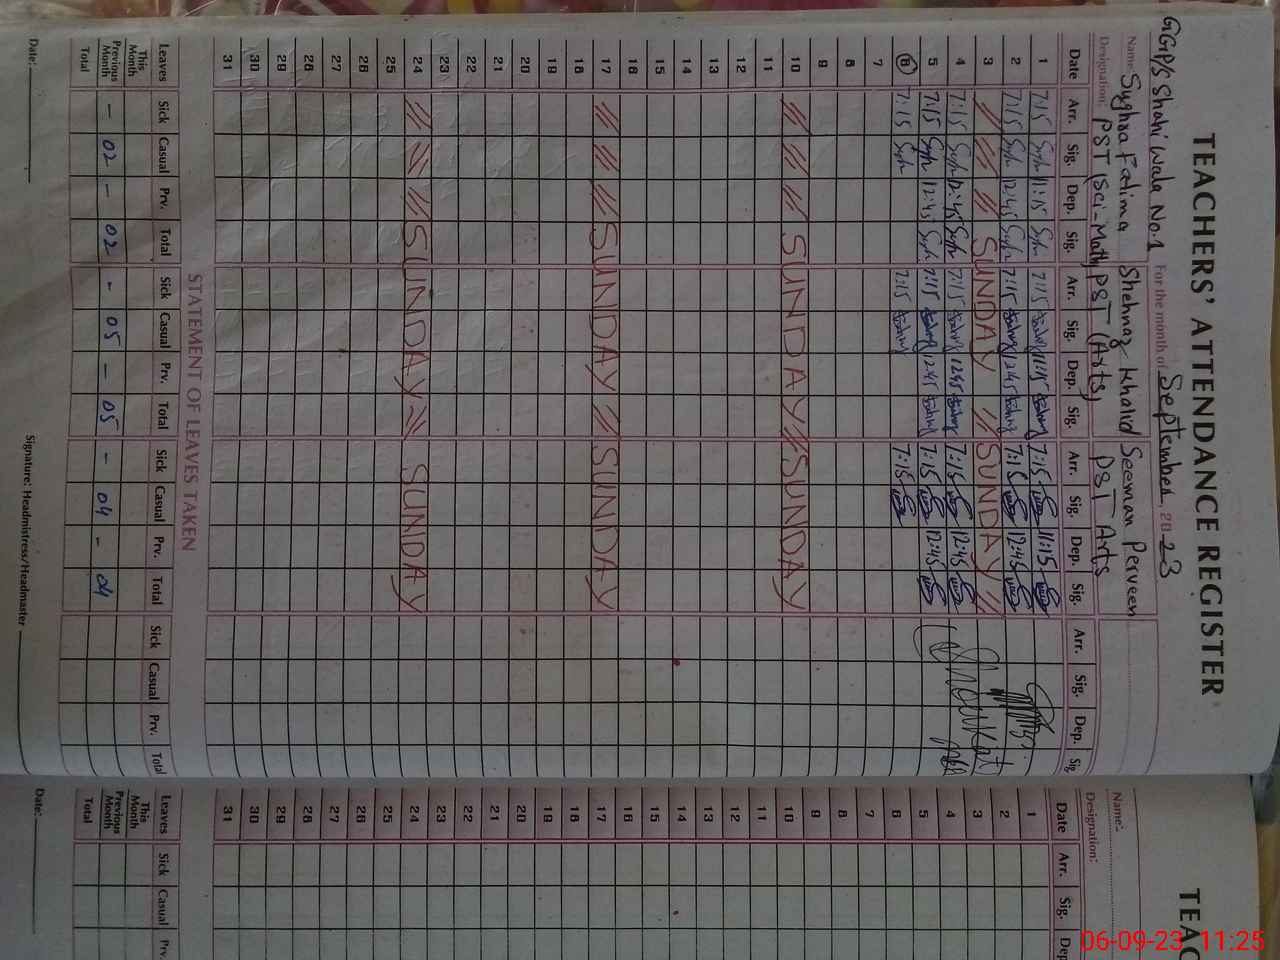 TEACHERS' ATTENDANCE REGISTER
GGP/S Shahi Wala No.1 For the month of September, 2023
Name: Syghra Fatima Shehnaz Khalid Seeman Perveen
Designation: PST (Sci-Math) PST (Arts) PST Arts
Date Arr. Sig. Dep. Sig. Arr. Sig. Dep. Sig. Arr. Sig. Dep. Sig. Arr. Sig. Dep. Sig
1 7:15 11:15 7:15 11:15 7:15 11:15
2 7:15 12:45 7:15 12:45 7:15 12:45
3 SUNDAY SUNDAY
4 7:15 12:45 7:15 12:45 7:15 12:45
5 7:15 12:45 7:15 12:45 7:15 12:45
6 7:15 7:15 7:15
7
8
9
10 SUNDAY SUNDAY
11
12
13
14
15
16
17 SUNDAY SUNDAY
18
19
20
21
22
23
24 SUNDAY SUNDAY
25
26
27
28
29
30
31
STATEMENT OF LEAVES TAKEN
Leaves Sick Casual Prv. Total Sick Casual Prv. Total Sick Casual Prv. Total Sick Casual Prv. Total
This Month
Previous Month - 02 - 02 - 05 - 05 - 04 - 04
Total
Date: Signature: Headmistress/Headmaster
TEAC
Name:
Designation:
Date Arr. Sig. De
1
2
3
4
5
6
7
8
9
10
11
12
13
14
15
16
17
18
19
20
21
22
23
24
25
26
27
28
29
30
31
Leaves Sick Casual Prv.
This Month
Previous Month
Total
Date:
06-09-23 11:25